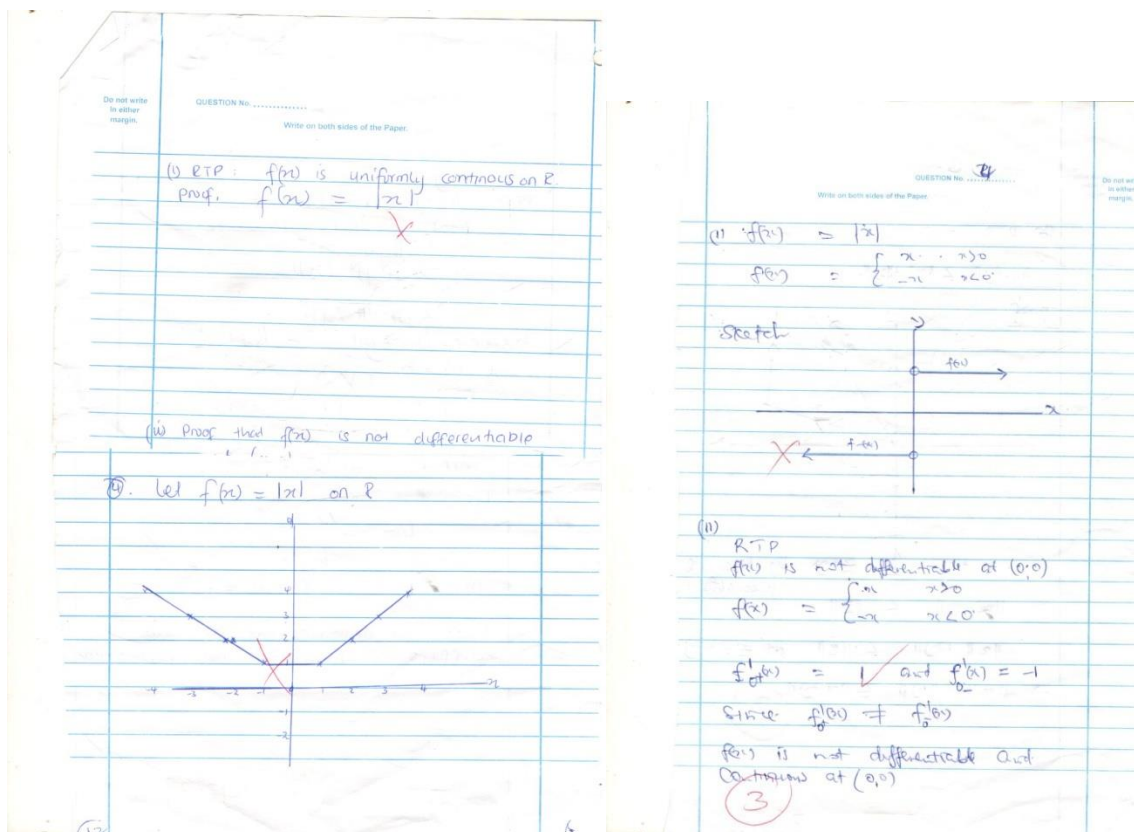 Do not write
in either
margin.
QUESTION No. ..............
Write on both sides of the Paper.
(i) RTP : f(x) is uniformly continous on R.
Proof. f(x) = |x|
(ii) Proof that f(x) is not differentiable
④. Let f(x) = |x| on R
y
4
3
2
1
-4 -3 -2 -1 0 1 2 3 4 x
-1
-2
QUESTION No. 4
Write on both sides of the Paper
Do not wr
in either
margin.
(i) f(x) = |x|
f(x) = { x x>0
-x x<0
Sketch
y
f(x)
x
f-(x)
(ii)
RTP
f(x) is not differentiable at (0,0)
f(x) = { x x>0
-x x<0
f'0+(x) = 1 and f'0-(x) = -1
Since f'0+(x) ≠ f'0-(x)
f(x) is not differentiable and
Continuous at (0,0)
3